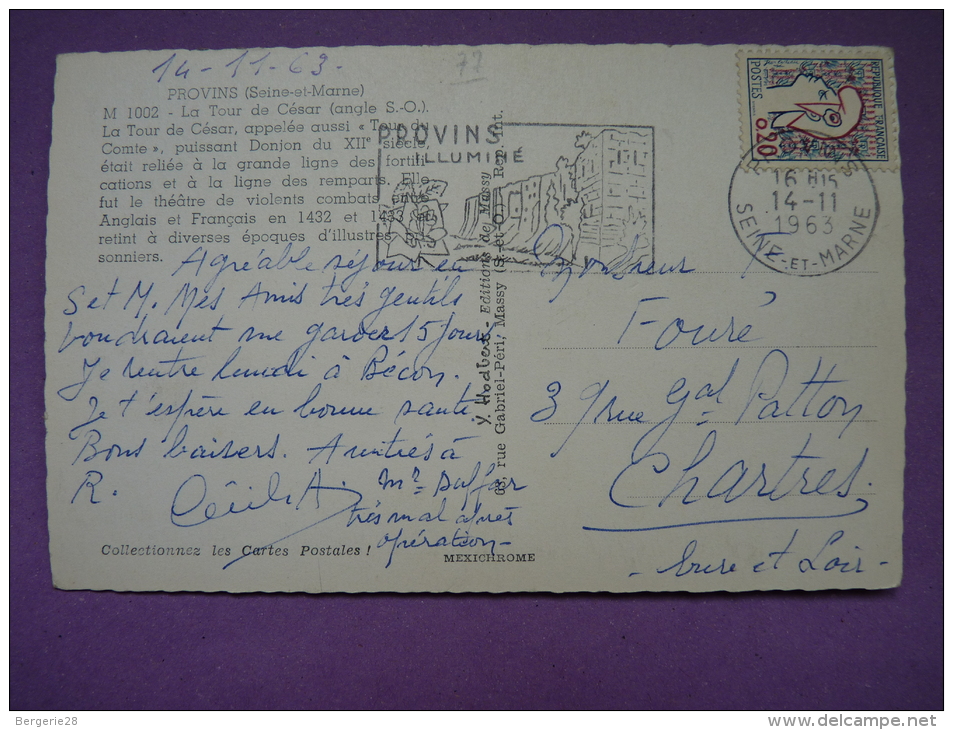 14-11-63-
77
PROVINS (Seine-et-Marne)
M 1002 - La Tour de César (angle S.-O.).
La Tour de César, appelée aussi « Tour du
Comte », puissant Donjon du XIIe siècle,
était reliée à la grande ligne des fortifi-
cations et à la ligne des remparts. Elle
fut le théâtre de violents combats entre
Anglais et Français en 1432 et 1433 et
retint à diverses époques d'illustres pri-
sonniers.
Agréable séjour en
S et M. Mes Amis très gentils
voudraient me garder 15 jours
Je rentre lundi à Bécon.
Je t'espère en bonne santé
Bons baisers. Amitiés à
R. Cécile A.
très mal après
opération-
Collectionnez les Cartes Postales !
MEXICHROME
Editions de Massy
63, rue Gabriel-Péri, Massy (S.-et-O.) Rep. Int.
PROVINS
ILLUMINÉ
REPUBLIQUE FRANÇAISE
POSTES
0,20
16 H15
14-11
1963
SEINE-ET-MARNE
Monsieur
Fouré
39 rue Gal Patton
Chartres.
- Eure et Loir -
Bergerie28
www.delcampe.net